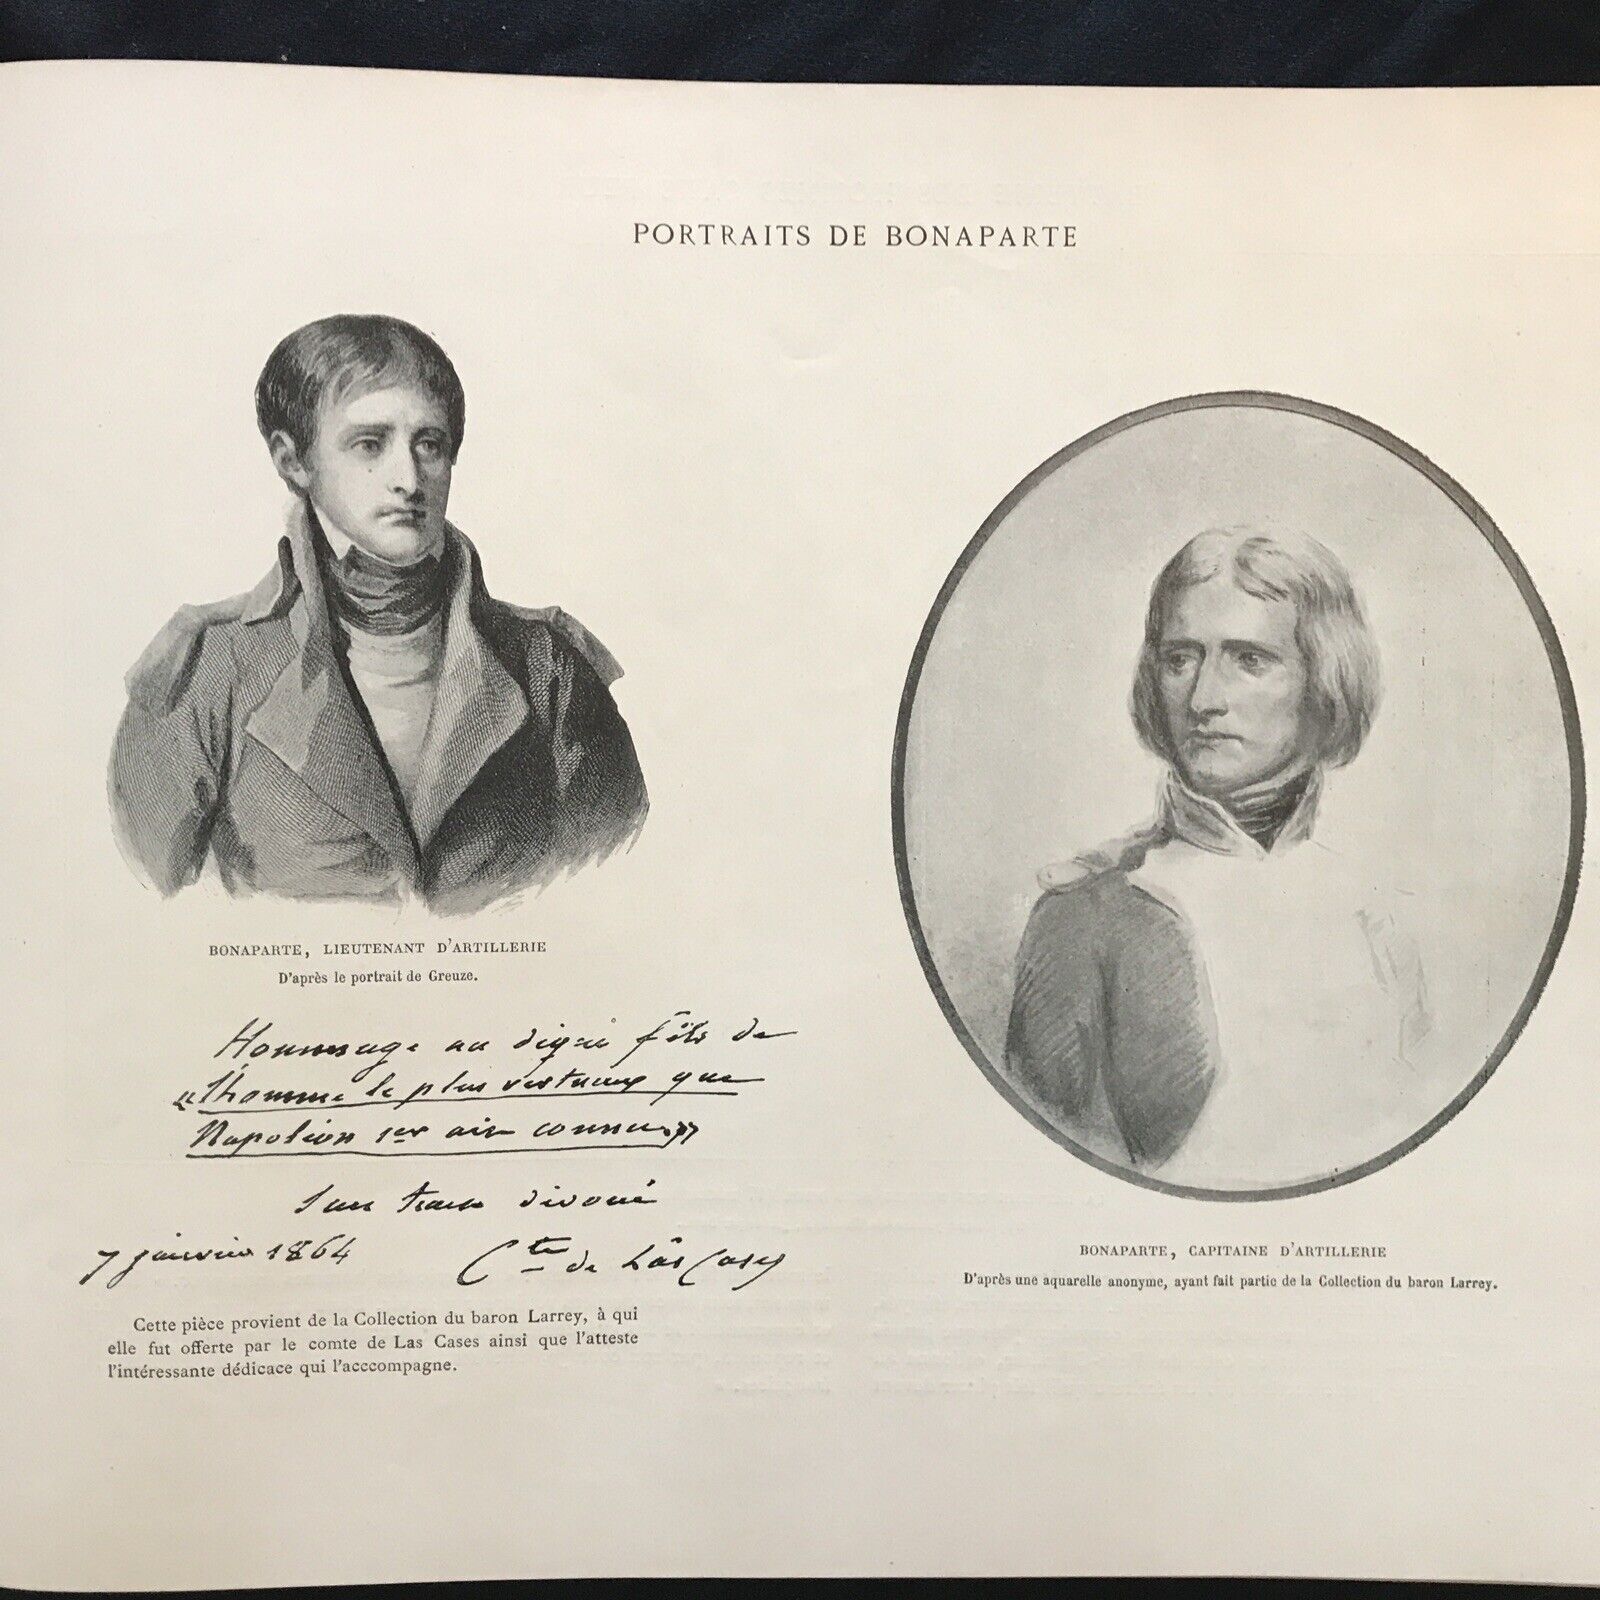 PORTRAITS DE BONAPARTE
BONAPARTE, LIEUTENANT D'ARTILLERIE
D'après le portrait de Greuze.
Hommage au digne fils de
"l'homme le plus vertueux que
Napoléon 1er ait connu"
Son tout dévoué
7 janvier 1864
Cte de Las Cases
Cette pièce provient de la Collection du baron Larrey, à qui
elle fut offerte par le comte de Las Cases ainsi que l'atteste
l'intéressante dédicace qui l'acccompagne.
BONAPARTE, CAPITAINE D'ARTILLERIE
D'après une aquarelle anonyme, ayant fait partie de la Collection du baron Larrey.